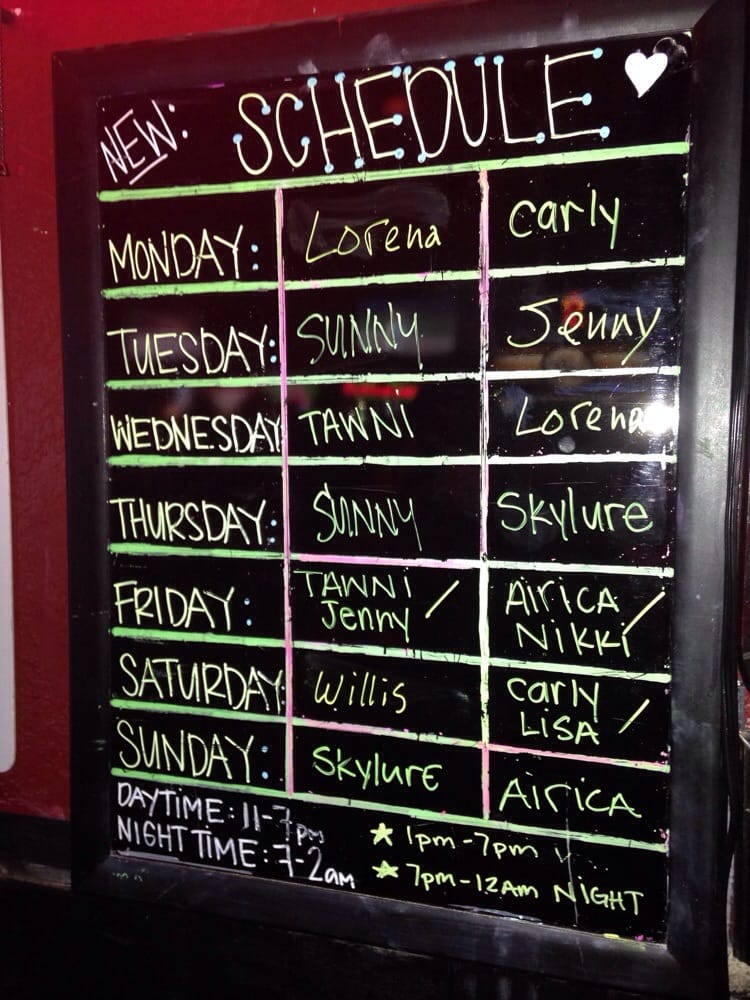 NEW: SCHEDULE
MONDAY: Lorena Carly
TUESDAY: SUNNY Jenny
WEDNESDAY TAWNI Lorena
THURSDAY: SUNNY Skylure
FRIDAY: TAWNI / Jenny AIRICA / NIKKI
SATURDAY: Willis Carly / LISA
SUNDAY: Skylure AIRICA
DAYTIME: 11-7pm
NIGHT TIME: 7-2am
★ 1pm-7pm
★ 7pm-12Am NIGHT